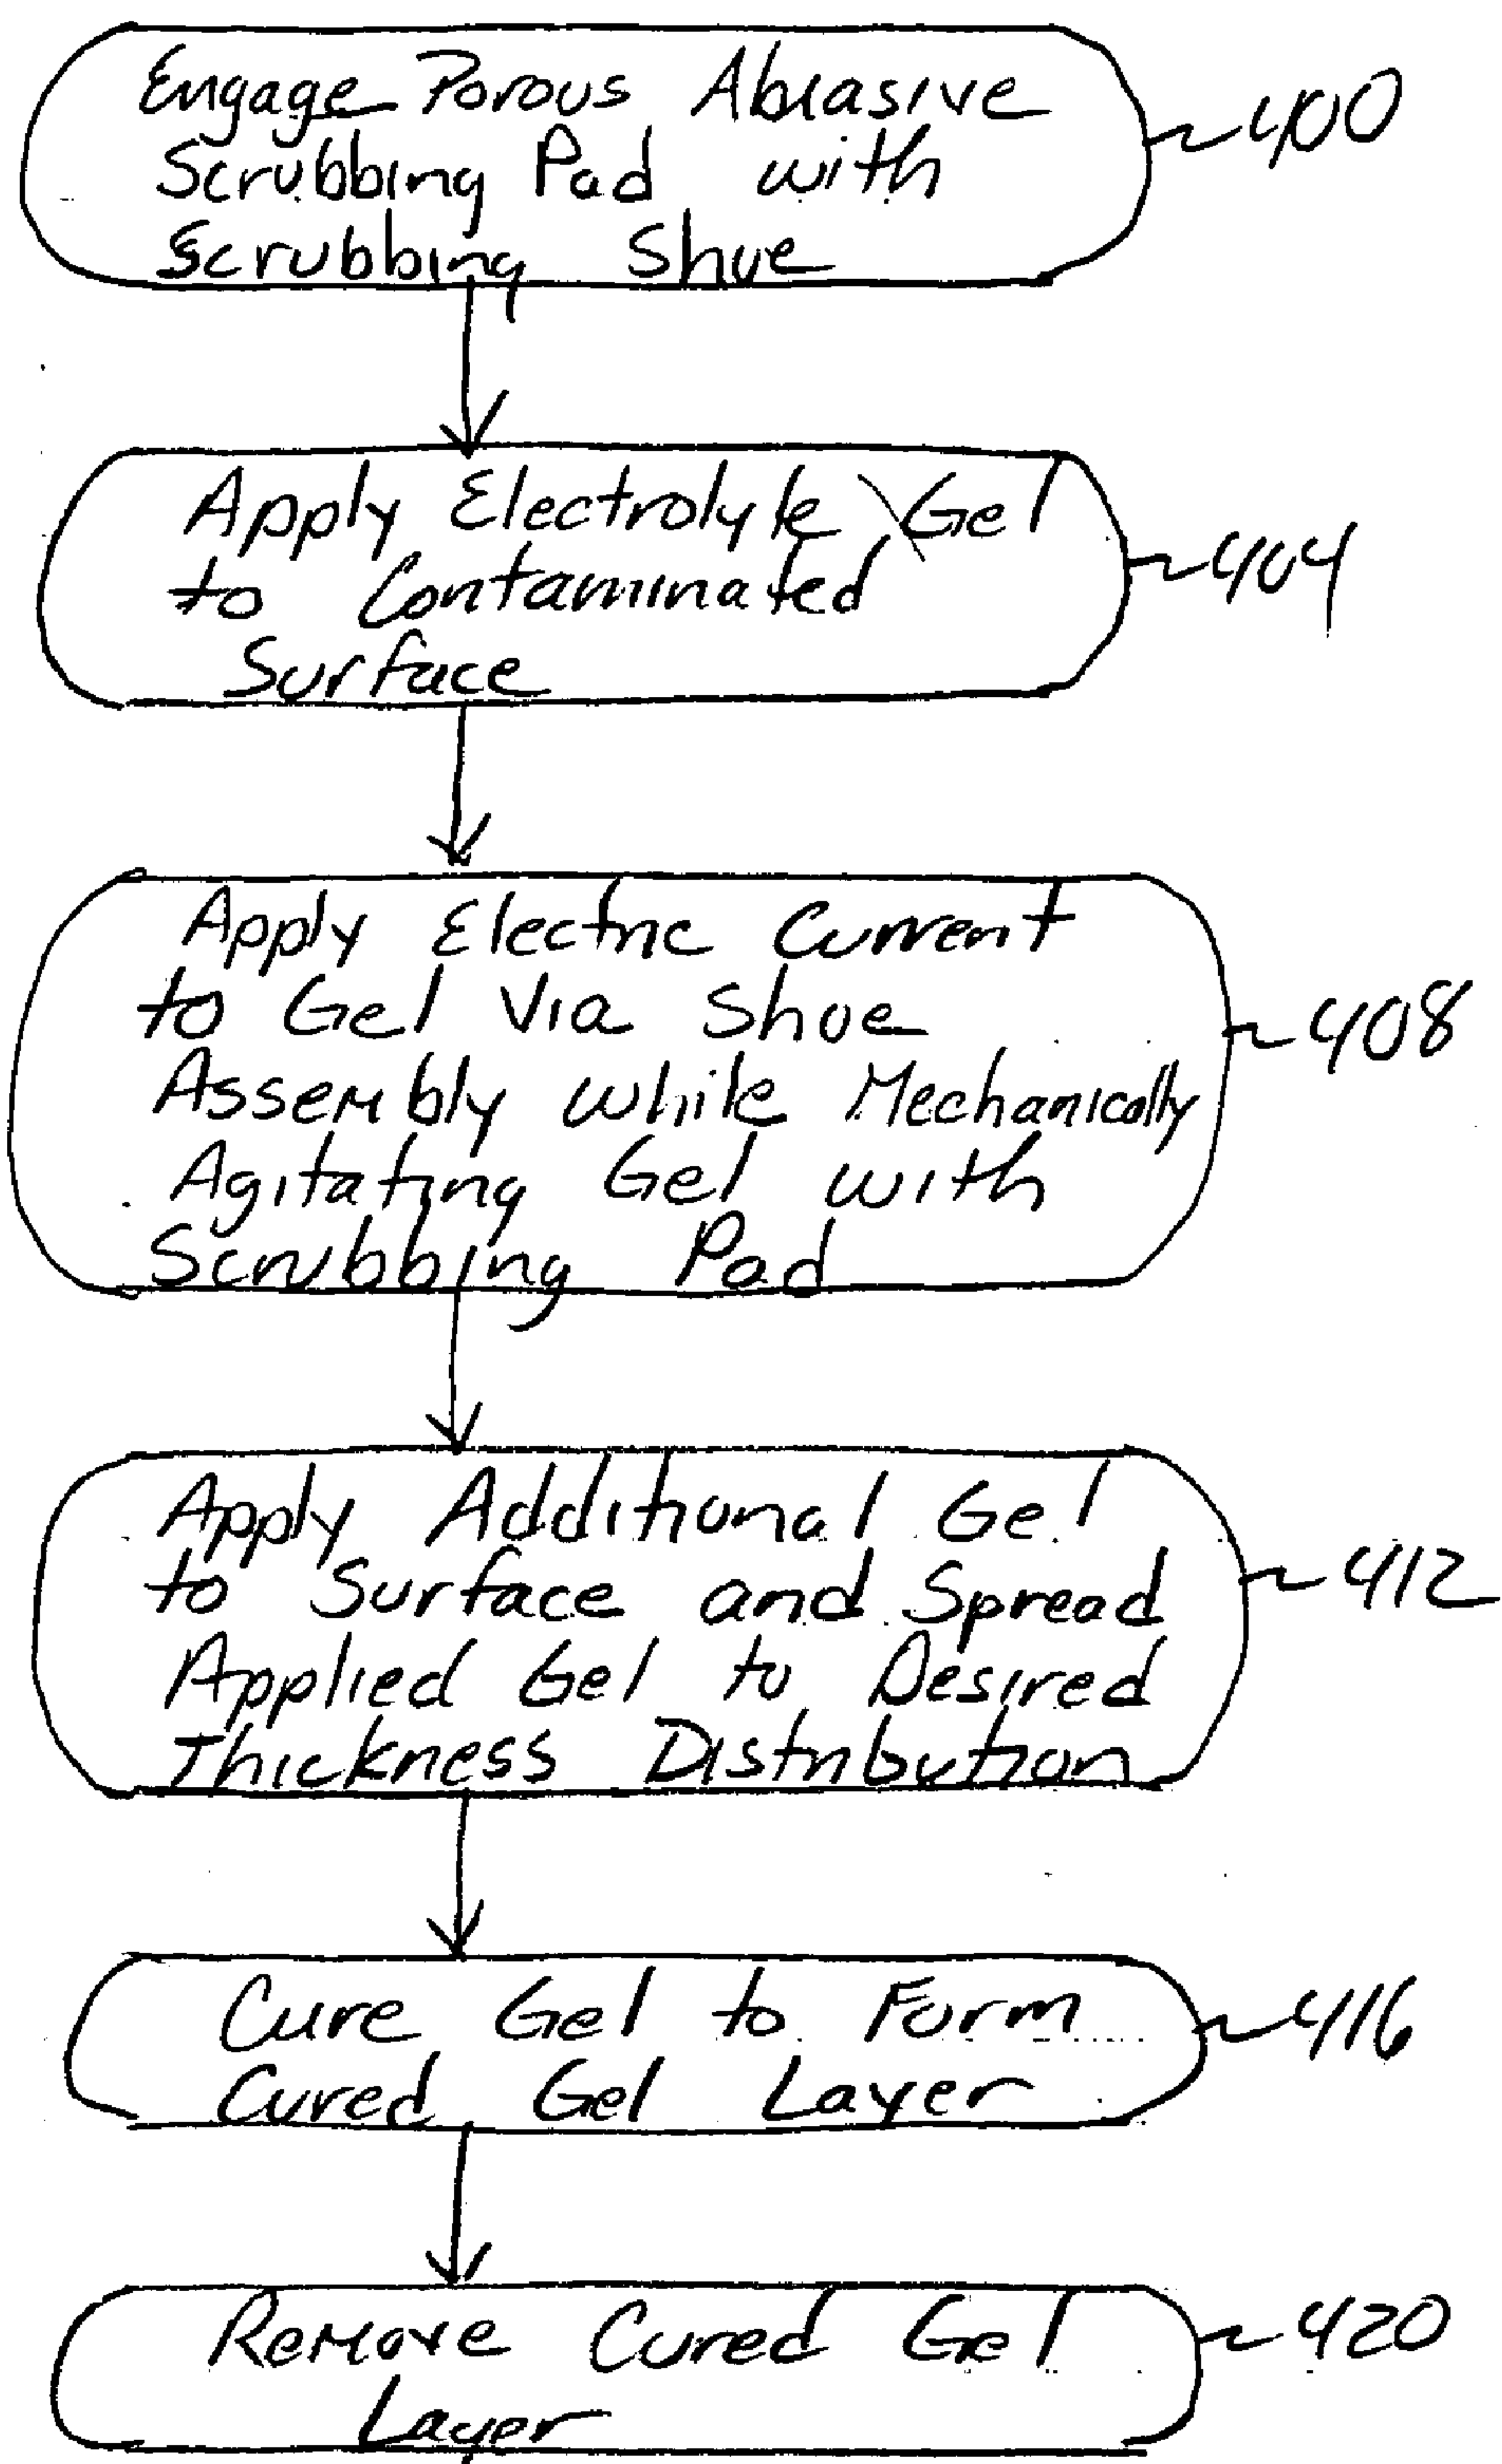 Engage Porous Abrasive
Scrubbing Pad with
Scrubbing Shoe
~400
Apply Electrolyte Gel
to Contaminated
Surface
~404
Apply Electric Current
to Gel Via Shoe
Assembly while Mechanically
Agitating Gel with
Scrubbing Pad
~408
Apply Additional Gel
to Surface and Spread
Applied Gel to Desired
Thickness Distribution
~412
Cure Gel to Form
Cured Gel Layer
~416
Remove Cured Gel
Layer
~420